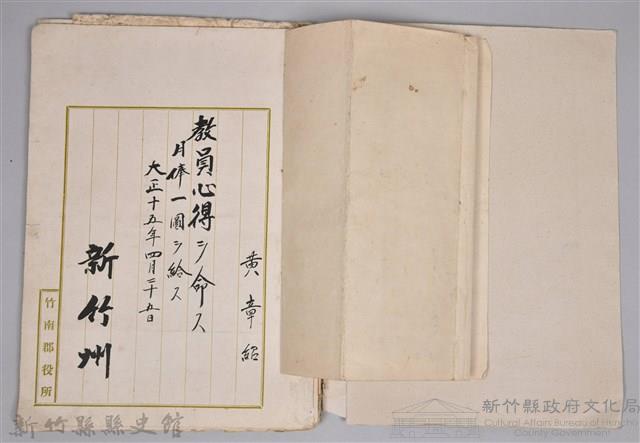 黄章紹
教員心得ヲ命ス
月俸一圓ヲ給ス
大正十五年四月二十五日
新竹州
竹南郡役所
新竹縣縣史館
新竹縣政府文化局
Cultural Affairs Bureau of Hsinchu
County Government